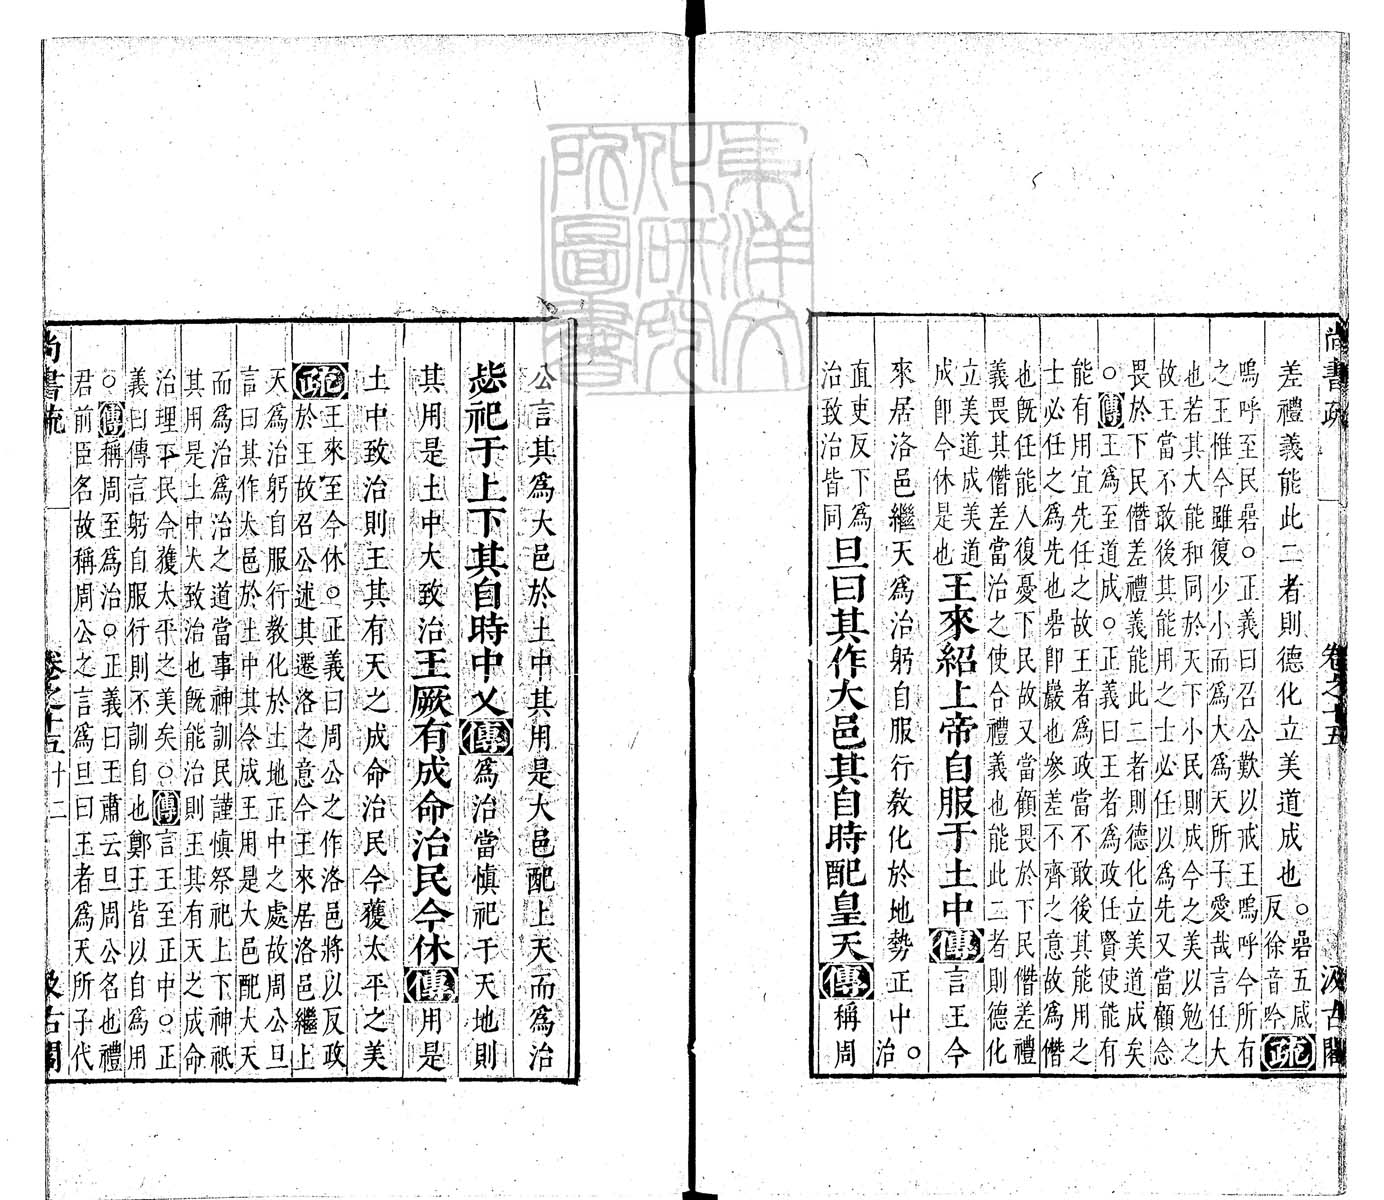 尚書疏 卷之十五 汲古閣
差禮義能此二者則德化立美道成也。碞五咸
反徐音吟疏
嗚呼至民碞。正義曰召公歎以戒王嗚呼今所有
之王惟今雖復少小而為大為天所子愛哉言任大
也若其大能和同於天下小民則成今之美以勉之
故王當不敢後其能用之士必任以為先又當顧念
畏於下民僭差禮義能此二者則德化立美道成矣
。傳王為至道成。正義曰王者為政任賢使能有
能有用宜先任之故王者為政當不敢後其能用之
士必任之為先也碞即巖也參差不齊之意故為僭
也既任能人復憂下民故又當顧畏於下民僭差禮
義畏其僭差當治之使合禮義也能此二者則德化
立美道成美道
成即今休是也王來紹上帝自服于土中傳言王今
來居洛邑繼天為治躬自服行敎化於地勢正中。治
直吏反下為
治致治皆同旦曰其作大邑其自時配皇天傳稱周
公言其為大邑於土中其用是大邑配上天而為治
毖祀于上下其自時中乂傳為治當慎祀于天地則
其用是土中大致治王厥有成命治民今休傳用是
土中致治則王其有天之成命治民今獲太平之美
疏王來至今休。正義曰周公之作洛邑將以反政
於王故召公述其遷洛之意今王來居洛邑繼上
天為治躬自服行教化於土地正中之處故周公旦
言曰其作大邑於土中其令成王用是大邑配大天
而為治為治之道當事神訓民謹慎祭祀上下神祇
其用是土中大致治也既能治則王其有天之成命
治理下民今獲太平之美矣。傳言王至正中。正
義曰傳言躬自服行則不訓自也鄭王皆以自為用
。傳稱周至為治。正義曰王肅云旦周公名也禮
君前臣名故稱周公之言為旦曰王者為天所子代
尚書疏 卷之十五 十二 汲古閣
東洋文化研究所圖書